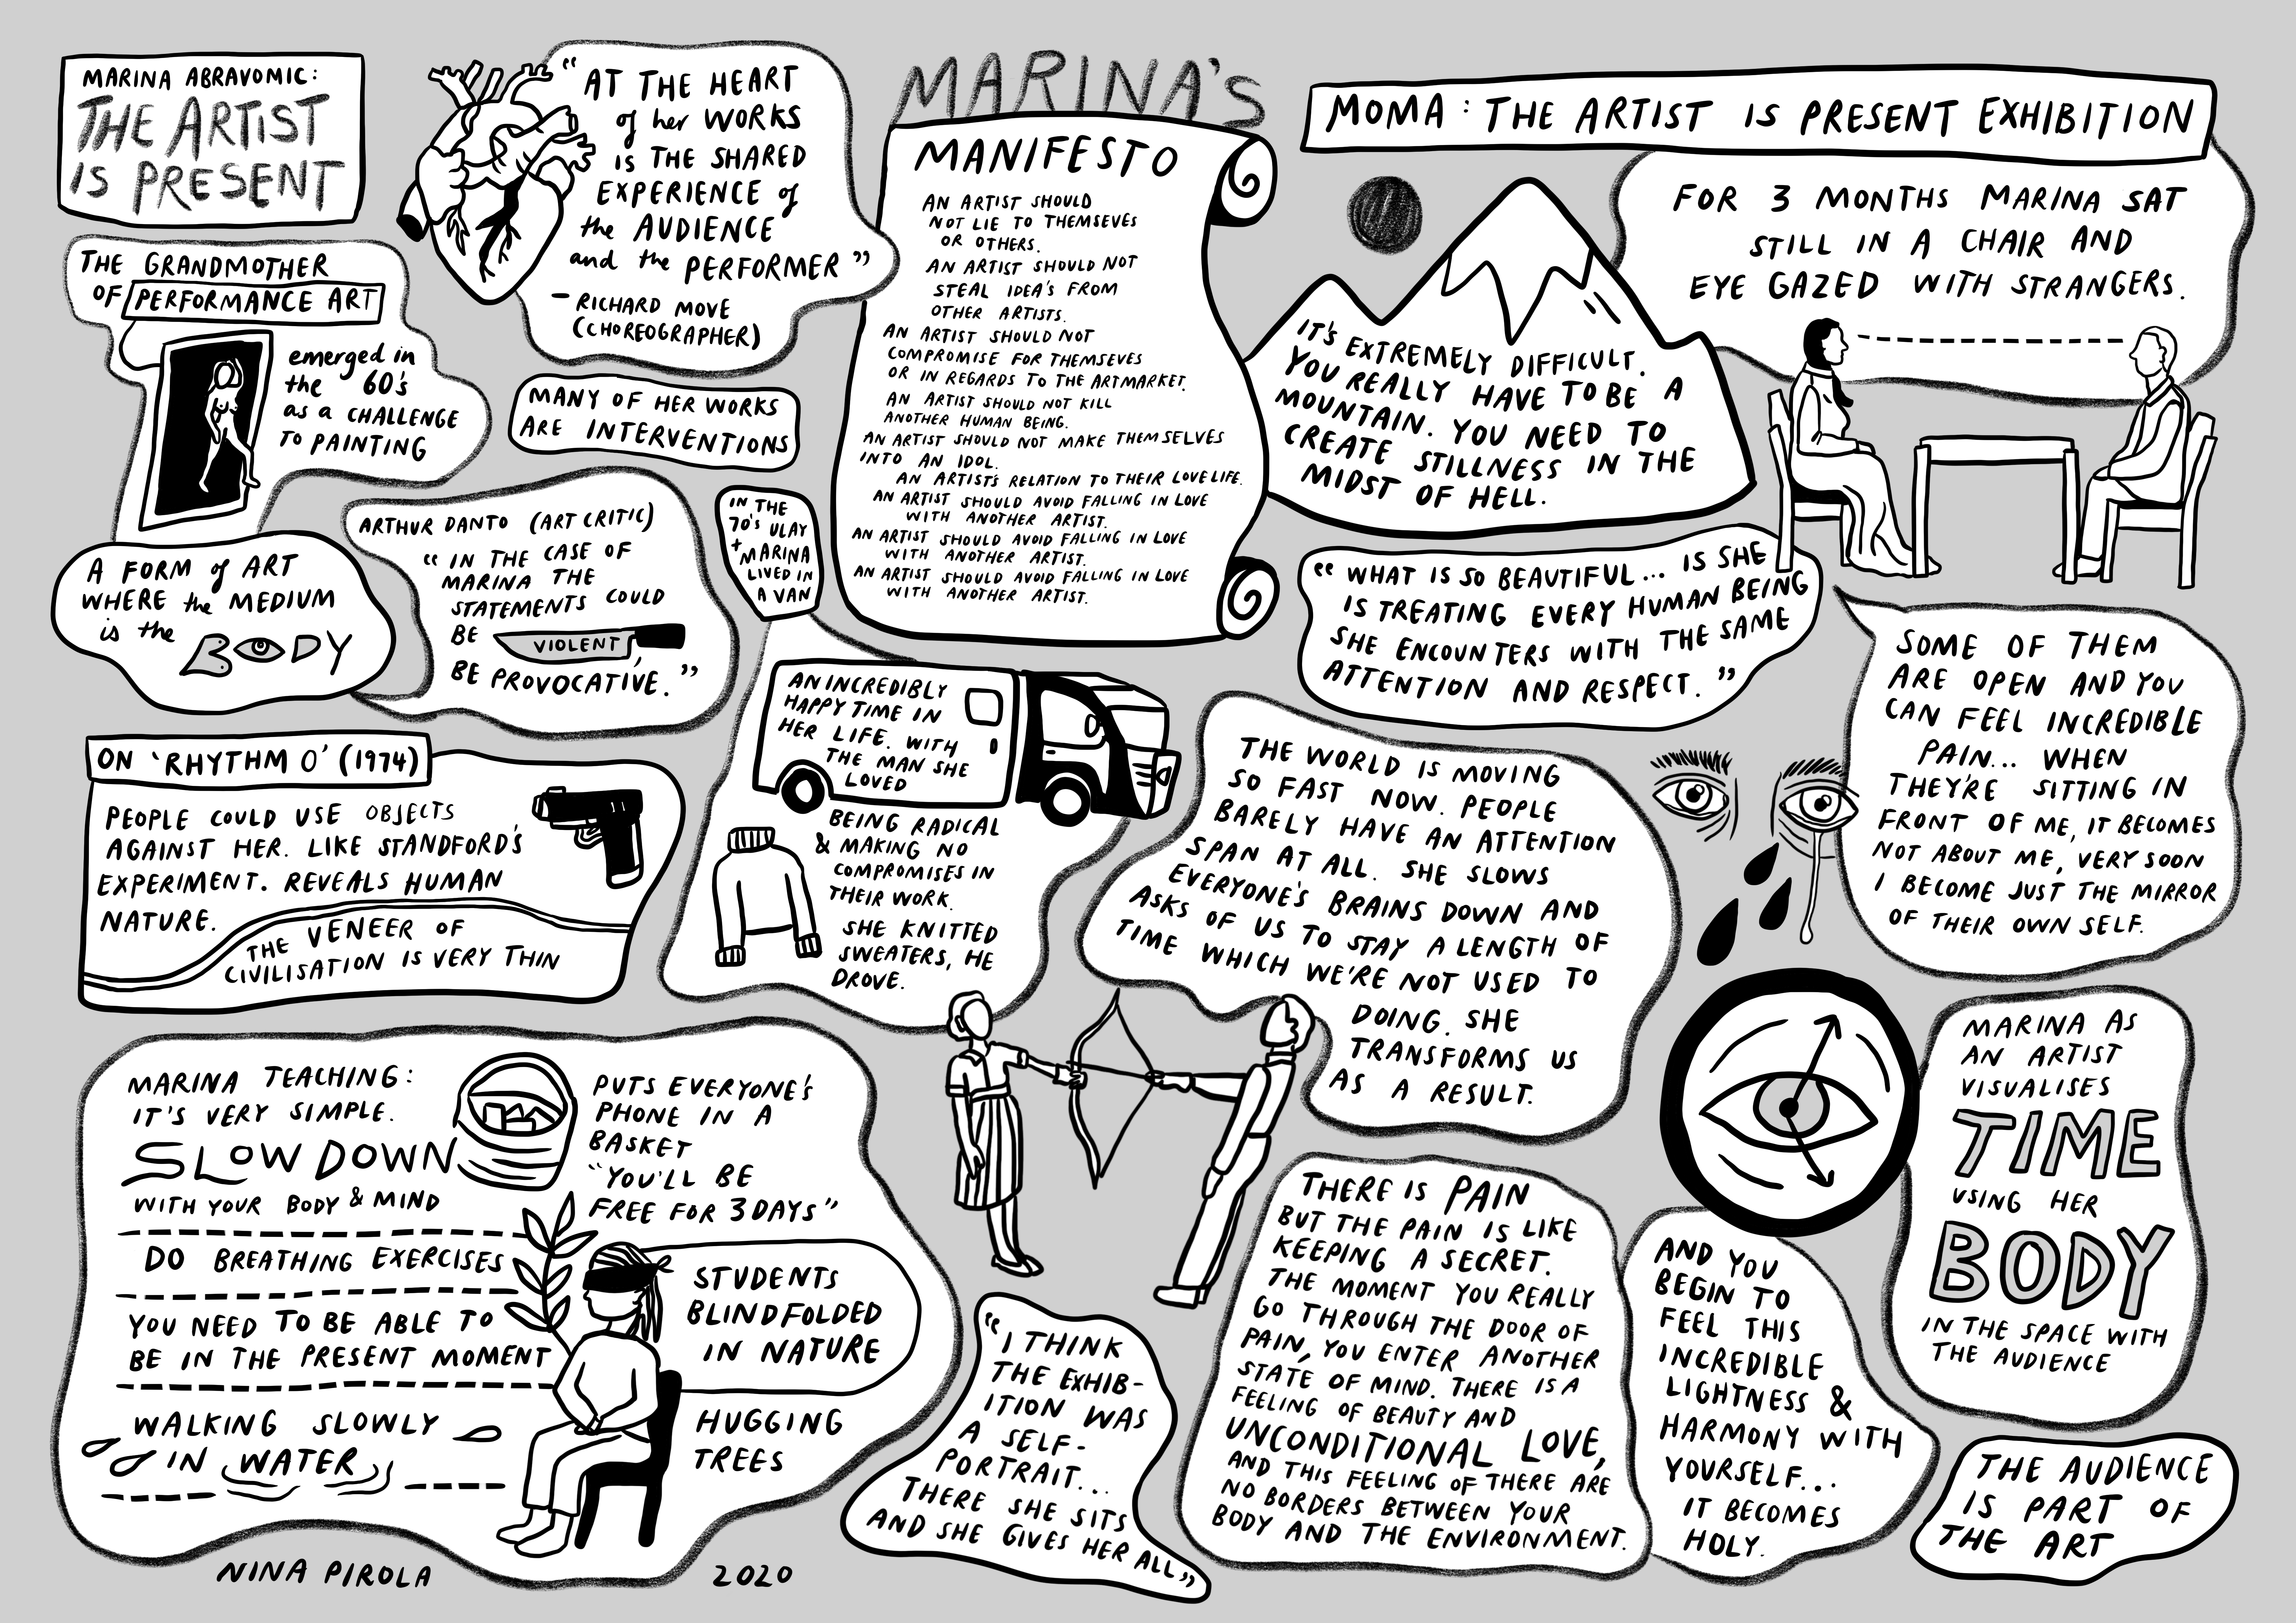 MARINA ABRAVOMIC:
THE ARTIST
IS PRESENT
THE GRANDMOTHER
OF PERFORMANCE ART
emerged in
the 60's
as a CHALLENGE
TO PAINTING
A FORM of ART
WHERE the MEDIUM
is the BODY
"AT THE HEART
of her WORKS
IS THE SHARED
EXPERIENCE of
the AUDIENCE
and the PERFORMER"
- RICHARD MOVE
(CHOREOGRAPHER)
MANY OF HER WORKS
ARE INTERVENTIONS
ARTHUR DANTO (ART CRITIC)
"IN THE CASE OF
MARINA THE
STATEMENTS COULD
BE VIOLENT,
BE PROVOCATIVE."
ON 'RHYTHM O' (1974)
PEOPLE COULD USE OBJECTS
AGAINST HER. LIKE STANDFORD'S
EXPERIMENT. REVEALS HUMAN
NATURE.
THE VENEER OF
CIVILISATION IS VERY THIN
MARINA'S
MANIFESTO
AN ARTIST SHOULD
NOT LIE TO THEMSEVES
OR OTHERS.
AN ARTIST SHOULD NOT
STEAL IDEA'S FROM
OTHER ARTISTS.
AN ARTIST SHOULD NOT
COMPROMISE FOR THEMSEVES
OR IN REGARDS TO THE ARTMARKET.
AN ARTIST SHOULD NOT KILL
ANOTHER HUMAN BEING.
AN ARTIST SHOULD NOT MAKE THEMSELVES
INTO AN IDOL.
AN ARTIST'S RELATION TO THEIR LOVE LIFE.
AN ARTIST SHOULD AVOID FALLING IN LOVE
WITH ANOTHER ARTIST.
AN ARTIST SHOULD AVOID FALLING IN LOVE
WITH ANOTHER ARTIST.
AN ARTIST SHOULD AVOID FALLING IN LOVE
WITH ANOTHER ARTIST.
IN THE
70's ULAY
+ MARINA
LIVED IN
A VAN
AN INCREDIBLY
HAPPY TIME IN
HER LIFE. WITH
THE MAN SHE
LOVED
BEING RADICAL
& MAKING NO
COMPROMISES IN
THEIR WORK.
SHE KNITTED
SWEATERS, HE
DROVE.
MOMA: THE ARTIST IS PRESENT EXHIBITION
FOR 3 MONTHS MARINA SAT
STILL IN A CHAIR AND
EYE GAZED WITH STRANGERS.
IT'S EXTREMELY DIFFICULT.
YOU REALLY HAVE TO BE A
MOUNTAIN. YOU NEED TO
CREATE STILLNESS IN THE
MIDST OF HELL.
"WHAT IS SO BEAUTIFUL... IS SHE
IS TREATING EVERY HUMAN BEING
SHE ENCOUNTERS WITH THE SAME
ATTENTION AND RESPECT."
SOME OF THEM
ARE OPEN AND YOU
CAN FEEL INCREDIBLE
PAIN... WHEN
THEY'RE SITTING IN
FRONT OF ME, IT BECOMES
NOT ABOUT ME, VERY SOON
I BECOME JUST THE MIRROR
OF THEIR OWN SELF.
THE WORLD IS MOVING
SO FAST NOW. PEOPLE
BARELY HAVE AN ATTENTION
SPAN AT ALL. SHE SLOWS
EVERYONE'S BRAINS DOWN AND
ASKS OF US TO STAY A LENGTH OF
TIME WHICH WE'RE NOT USED TO
DOING. SHE
TRANSFORMS US
AS A RESULT.
MARINA TEACHING:
IT'S VERY SIMPLE.
SLOW DOWN
WITH YOUR BODY & MIND
DO BREATHING EXERCISES
YOU NEED TO BE ABLE TO
BE IN THE PRESENT MOMENT
WALKING SLOWLY
IN WATER
PUTS EVERYONE'S
PHONE IN A
BASKET
"YOU'LL BE
FREE FOR 3 DAYS"
STUDENTS
BLINDFOLDED
IN NATURE
HUGGING
TREES
"I THINK
THE EXHIB-
ITION WAS
A SELF-
PORTRAIT...
THERE SHE SITS
AND SHE GIVES HER ALL"
THERE IS PAIN
BUT THE PAIN IS LIKE
KEEPING A SECRET.
THE MOMENT YOU REALLY
GO THROUGH THE DOOR OF
PAIN, YOU ENTER ANOTHER
STATE OF MIND. THERE IS A
FEELING OF BEAUTY AND
UNCONDITIONAL LOVE,
AND THIS FEELING OF THERE ARE
NO BORDERS BETWEEN YOUR
BODY AND THE ENVIRONMENT.
AND YOU
BEGIN TO
FEEL THIS
INCREDIBLE
LIGHTNESS &
HARMONY WITH
YOURSELF...
IT BECOMES
HOLY.
MARINA AS
AN ARTIST
VISUALISES
TIME
USING HER
BODY
IN THE SPACE WITH
THE AUDIENCE
THE AUDIENCE
IS PART OF
THE ART
NINA PIROLA 2020